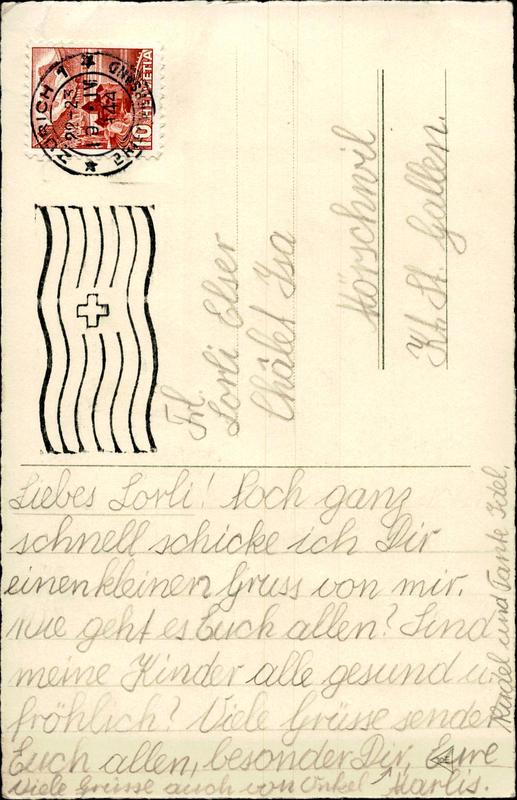 ZÜRICH 1
22-23
19. IV
-44
BRIEFVERSAND
10 HELVETIA
Frl.
Lorli Elser
Châlet Isa
Mörschwil
Kt. St. Gallen.
Liebes Lorli! Noch ganz
schnell schicke ich Dir
einen kleinen Gruss von mir.
Wie geht es Euch allen? Sind
meine Kinder alle gesund u.
fröhlich? Viele Grüsse sendet
Euch allen, besonder Dir, Eure
Marlis.
Viele Grüsse auch von Onkel
und Tante Idel.